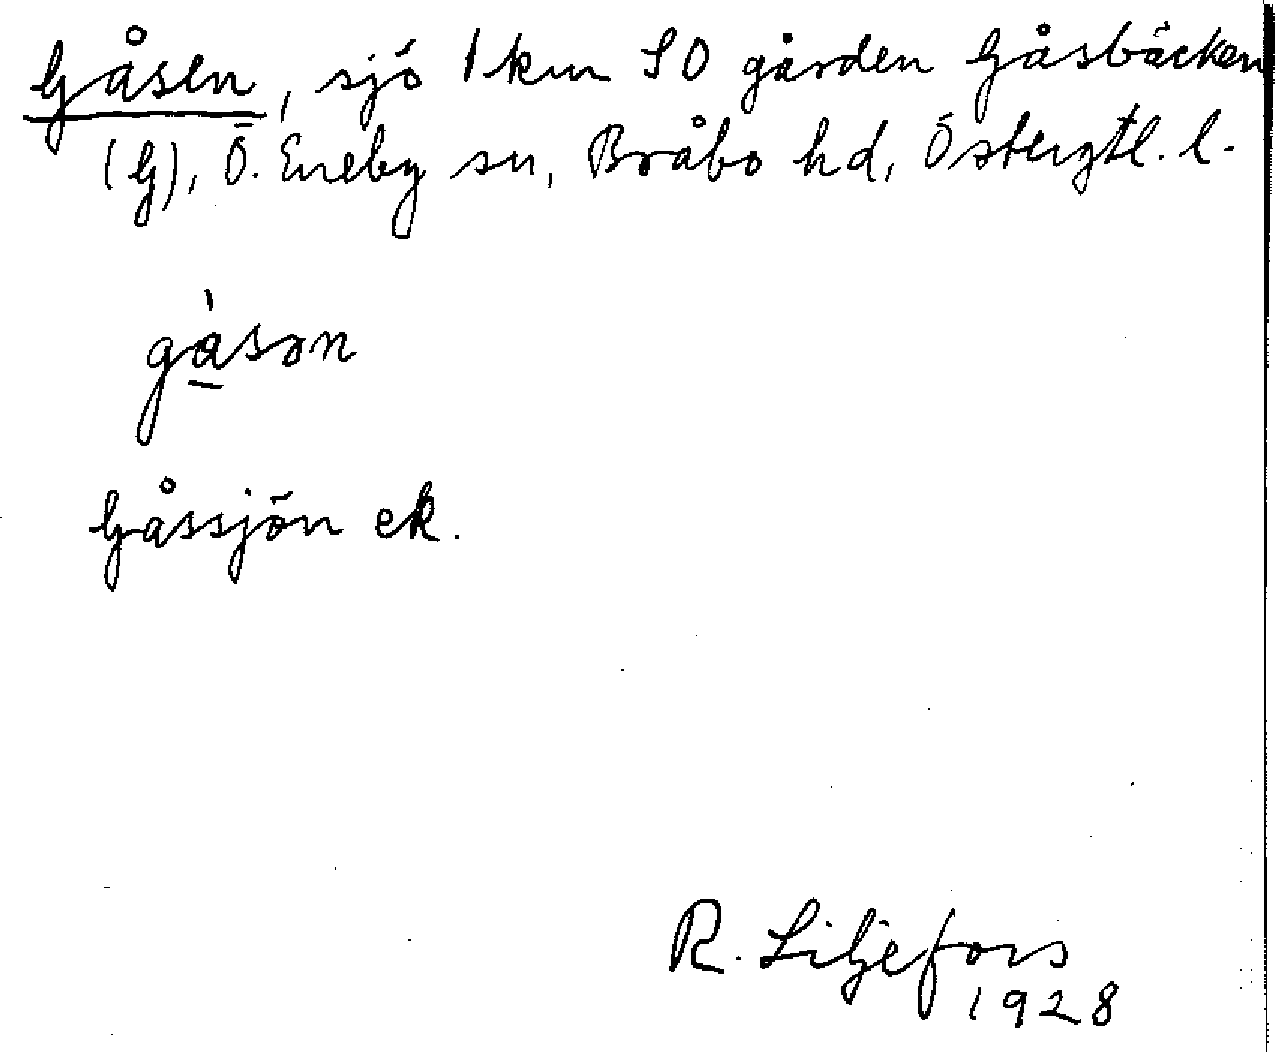 Gåsen, sjö 1 km SO gården Gåsbäcken
(G), Ö. Eneby sn, Bråbo hd, Östergtl. l.
gȧ̀sən
Gåssjön ek.
R. Liljefors
1928